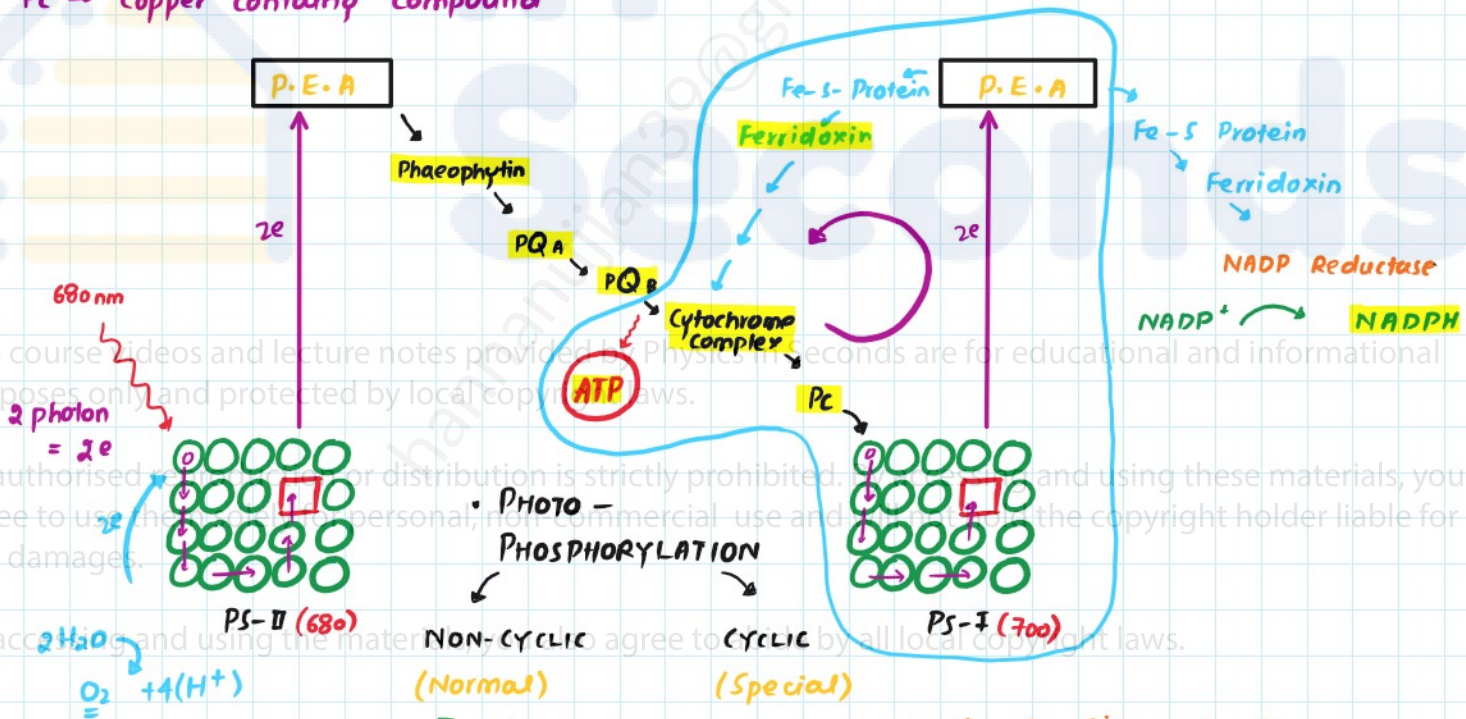 Pc → Copper containg compound
Seconds
P.E.A
Phaeophytin
PQ A
PQ B
Cytochrome
Complex
Pc
ATP
2e
680 nm
2 photon
= 2e
2e
PS-II (680)
2H₂O
O₂ +4(H⁺)
Fe-S-Protein
P.E.A
Ferridoxin
2e
Fe-S Protein
Ferridoxin
NADP Reductase
NADP⁺
NADPH
PS-I (700)
• PHOTO –
PHOSPHORYLATION
NON-CYCLIC
CYCLIC
(Normal)
(Special)
course videos and lecture notes provided by Physics Seconds are for educational and informational
poses only and protected by local copyright laws.
authorised or distribution is strictly prohibited. and using these materials, you
ee to use personal, use and the copyright holder liable for
damages.
accessing and using the materials, you also agree to abide by all local copyright laws.